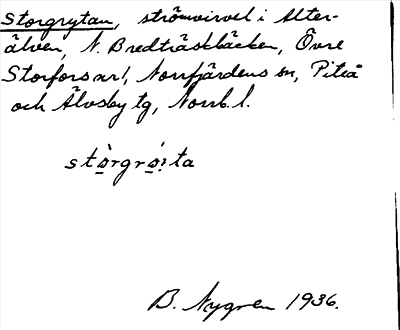 Storgrytan, strömvirvel i Alter-
älven, N. Bredträskbäcken, Övre
Storfors kr!, Norrfjärdens sn, Piteå
och Älvsby tg, Norrb. l.
B. Nygren 1936.